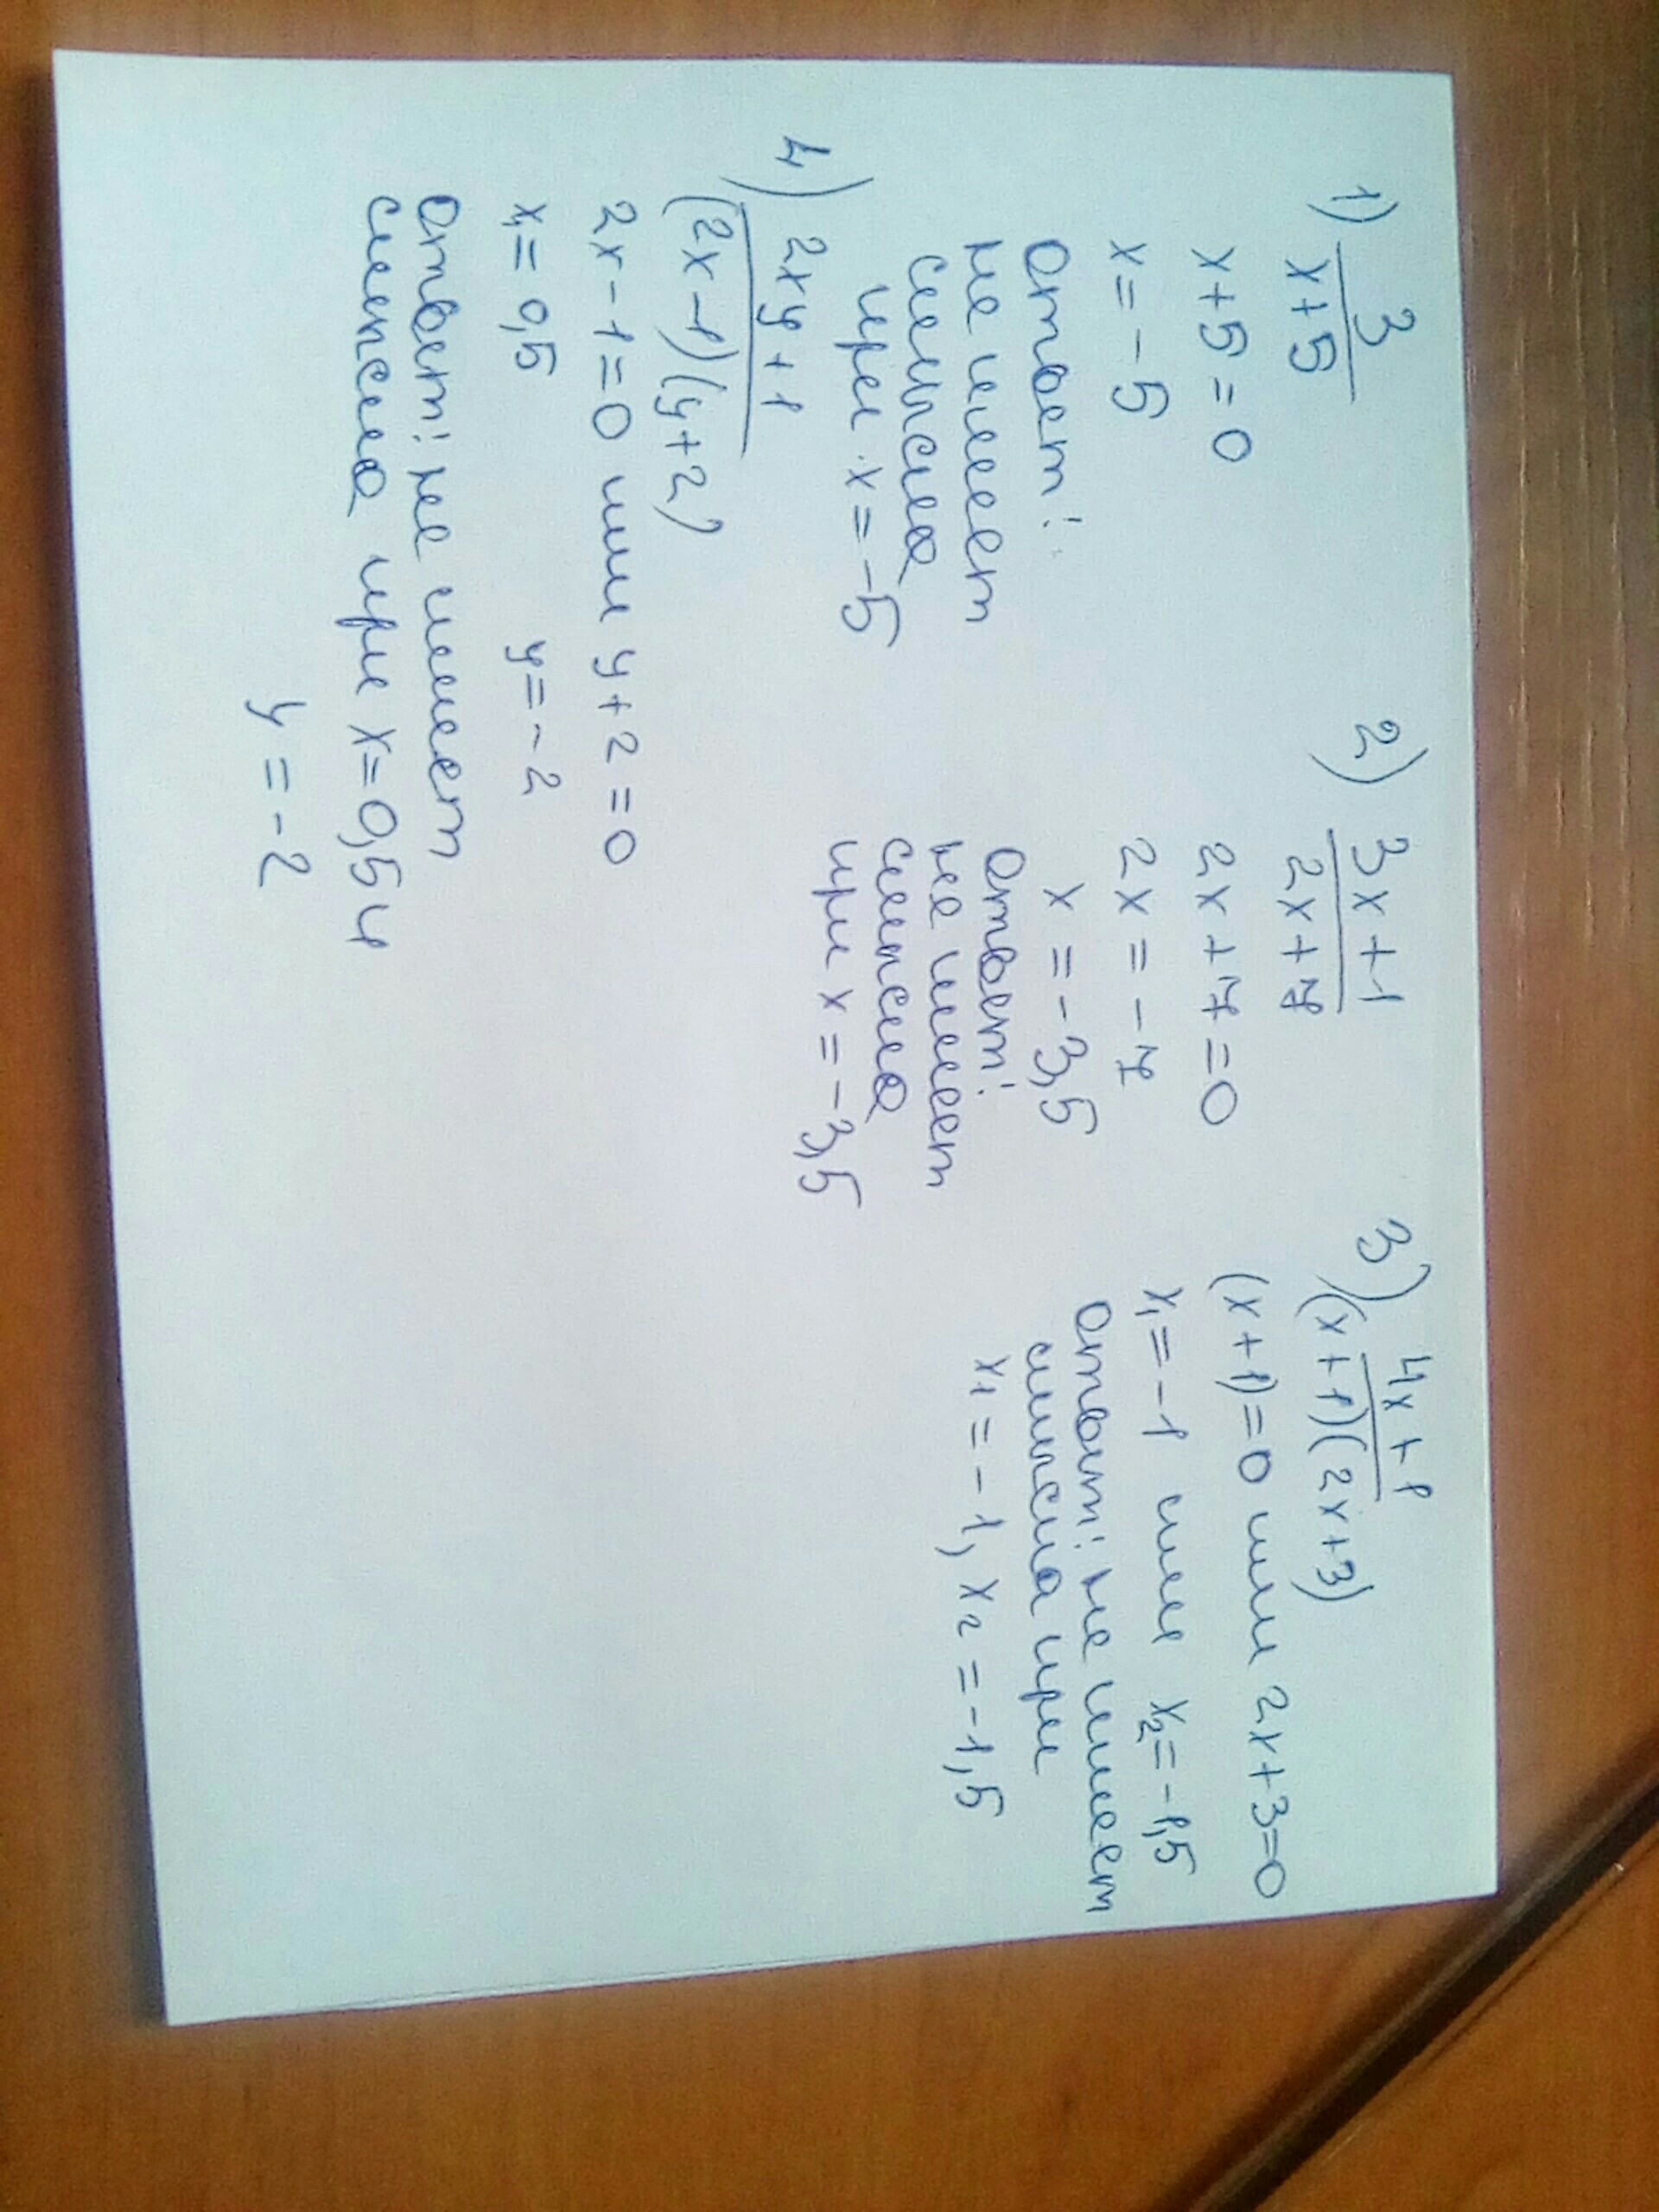 1) 3/(x+5)
x+5=0
x=-5
Ответ:
не имеет
смысла
при x=-5
2) (3x+1)/(2x+7)
2x+7=0
2x=-7
x=-3,5
Ответ:
не имеет
смысла
при x=-3,5
3) (4x+1)/((x+1)(2x+3))
(x+1)=0 или 2x+3=0
x₁=-1 или x₂=-1,5
Ответ: не имеет
смысла при
x₁=-1, x₂=-1,5
4) (2xy+1)/((2x-1)(y+2))
2x-1=0 или y+2=0
x₁=0,5 y=-2
Ответ: не имеет
смысла при x=0,5 и
y=-2